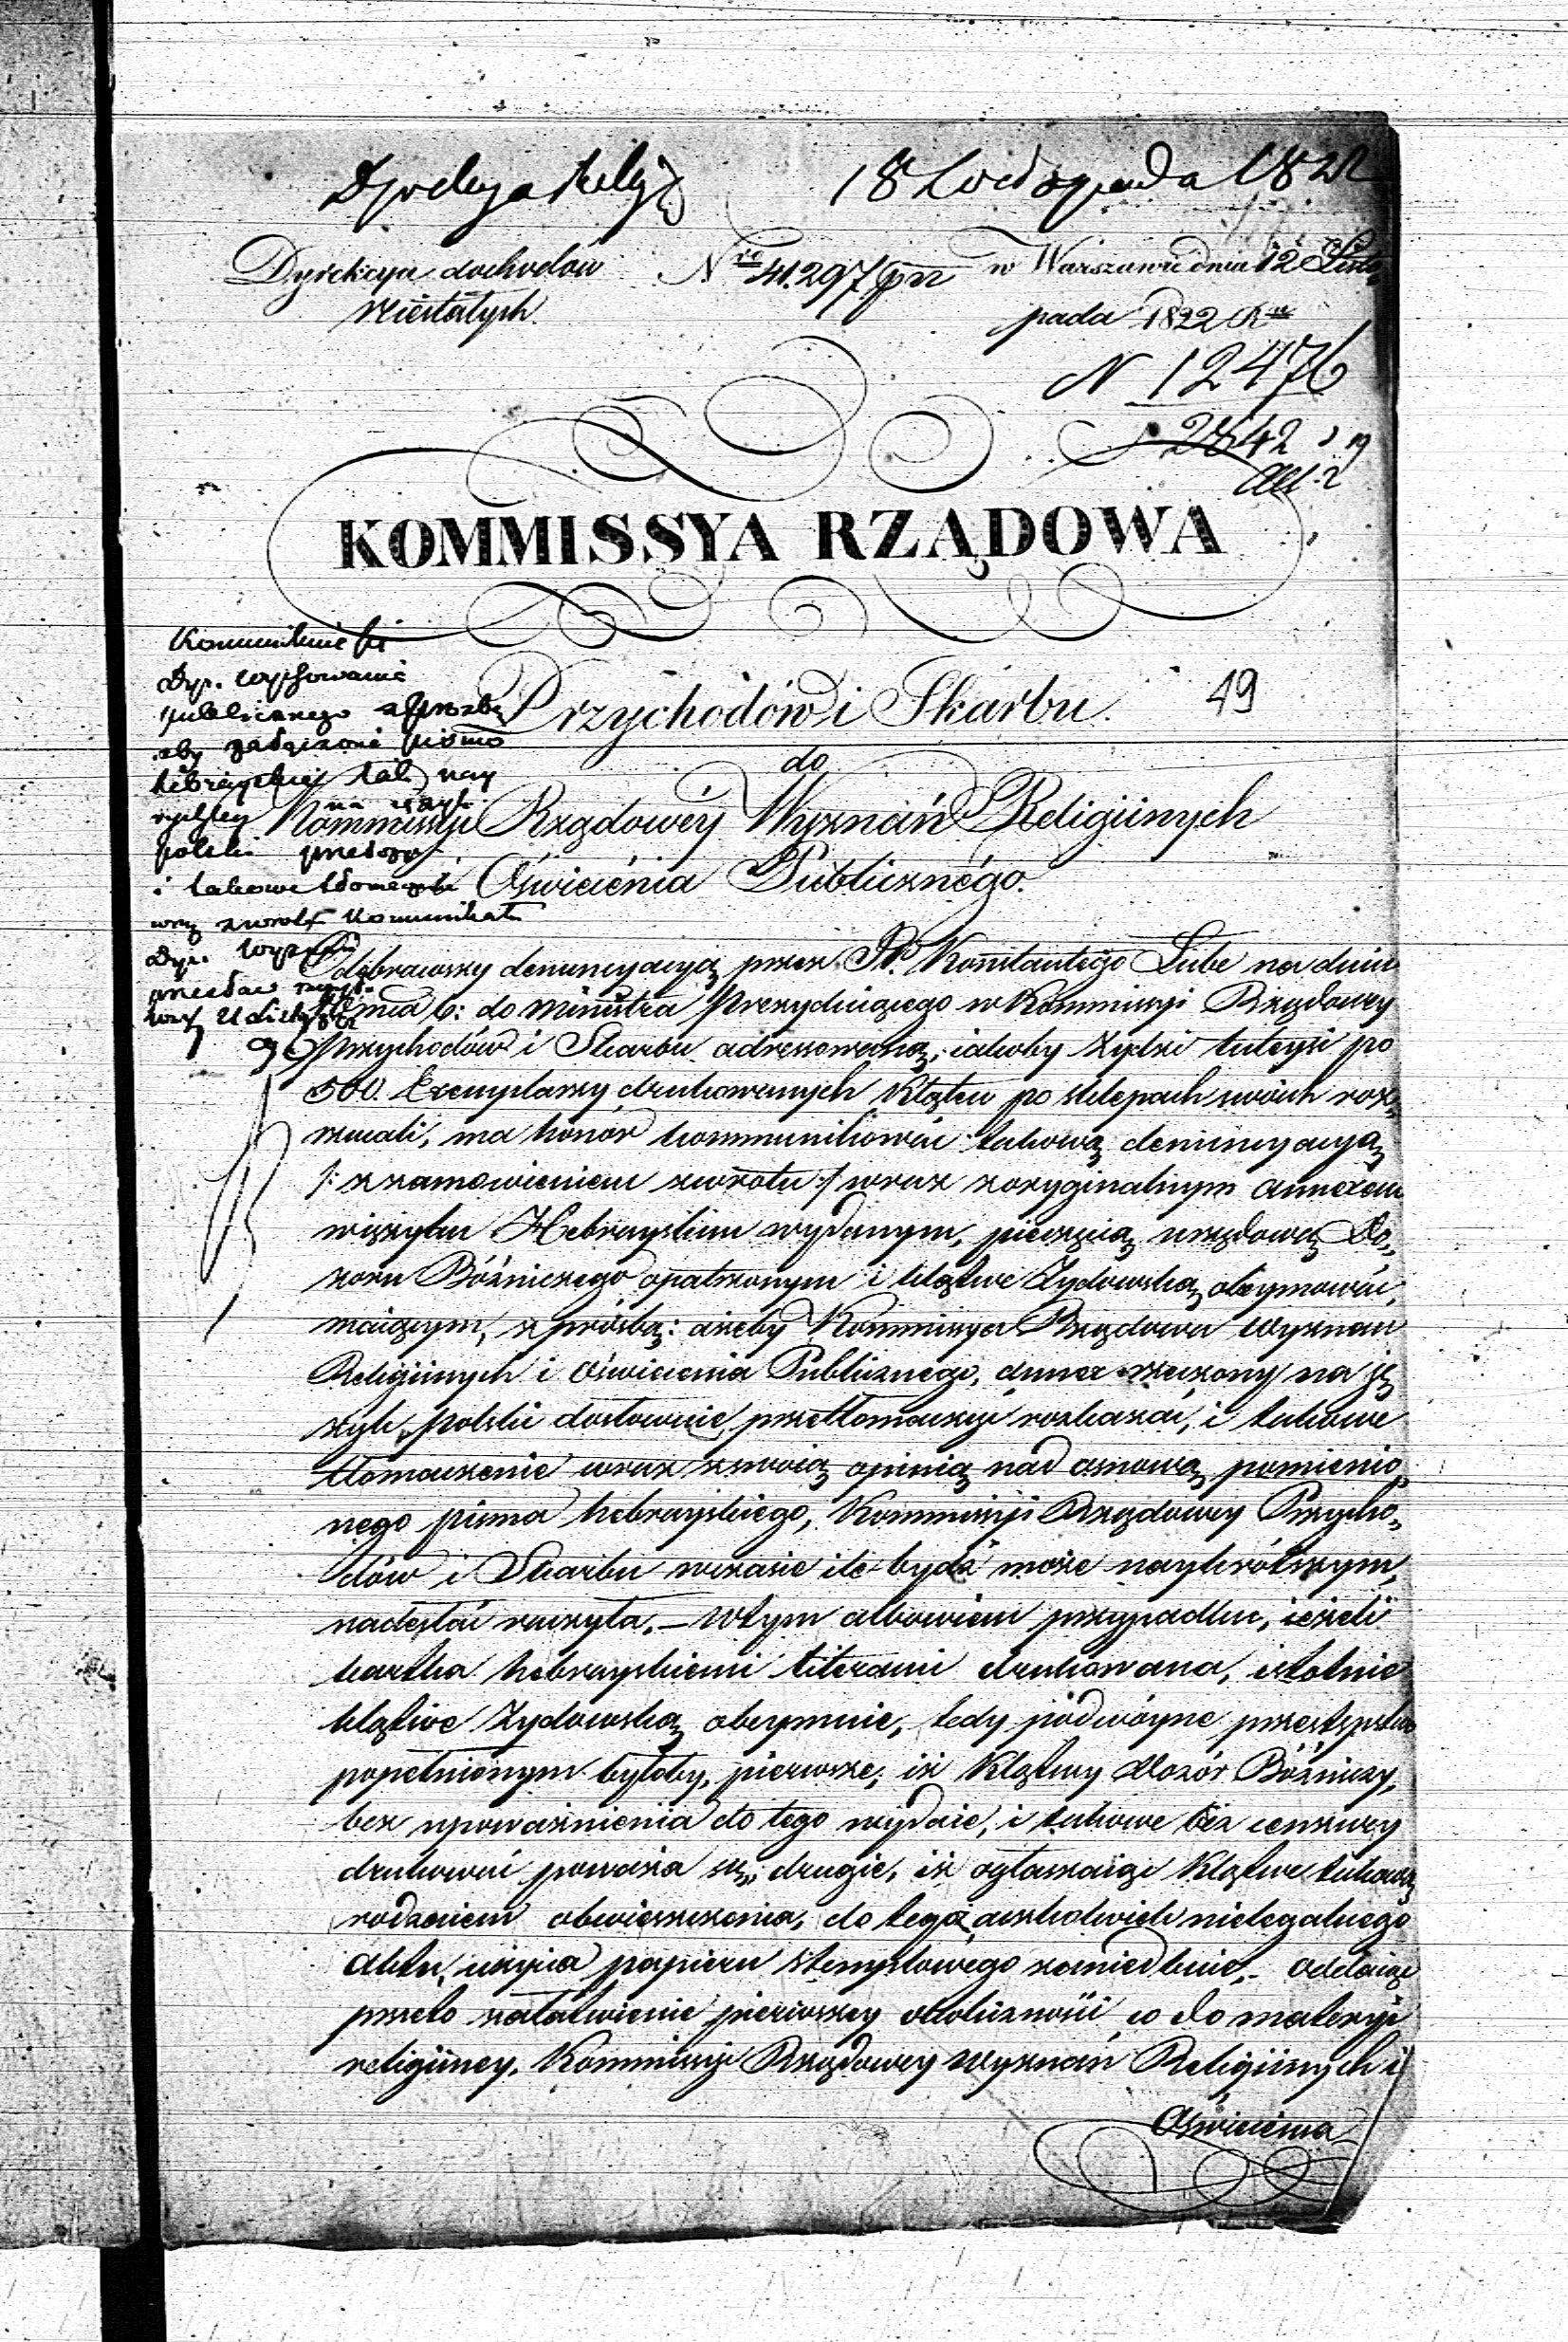 18 Listopada 1822
Dyrekcya dochodów Nro 41.297 w Warszawie dnia 12 Listo-
niestałych pada 1822 Ru
N 12476
2842
KOMMISSYA RZĄDOWA
Przychodów i Skarbu. 49
do
Kommissyi Rządowéy Wyznań Religiinych
Oświecénia Publicznégo.
Kommunikuie się
Dyr. wychowania
publicznego z prozbą
aby załączone pismo
hebrayskie iak nay
na ięzyk
polski
i takowe
wraz zwrotu kommunikatu
Odebrawszy denuncyacyą przez P. Konstantego Lube na dniu
6: do Ministra Prezyduiącego w Kommissyi Rządowey
Przychodów i Skarbu adressowaną, iakoby Żydzi tuteysi po
500. Exemplarzy drukowanych Klątew po sklepach swoich roz-
rzucali, ma honor kommunikować takową denuncyacyą
/: z zamowieniem zwrotu :/ wraz z oryginalnym annexem
w ięzyku Hebrayskim wydanym, pieczęcią urzędową Do-
zoru Bóżniczego opatrzonym i klątwe Żydowską obeymować
maiącym, z prośbą: ażeby Kommissya Rządowa Wyznań
Religiinych i Oświecenia Publicznego, annex rzeczony na ję-
zyk polski dosłownie przetłomaczyć rozkazać, i takowe
tłomaczenie wraz z swoią opinią nad osnową pomienio-
nego pisma hebrayskiego, Kommissyi Rządowey Przycho-
dów i Skarbu w czasie ile bydź może naykrótszym,
nadesłać raczyła. – W tym albowiem przypadku, ieżeli
kartka hebrayskiemi literami drukowana, istotnie
klątwe Żydowską obeymuie, tedy podwóyne przestępstwo
popełnionym byłoby, pierwsze; iż Klątwy Dozór Bóżniczy,
bez upoważnienia do tego wydaie, i takowe bez cenzury
drukować poważa się; drugie, iż ogłaszaiąc Klątwe takową
rodzaiem obwieszczenia, do tego aczkolwiek nielegalnego
Aktu, użycia papieru stemplowégo zaniedbuie. – Oddaiąc
przeto załatwienie pierwszey okoliczności, co do materyi
religiiney, Kommissyi Rządowey Wyznań Religiinych i
Oświecenia